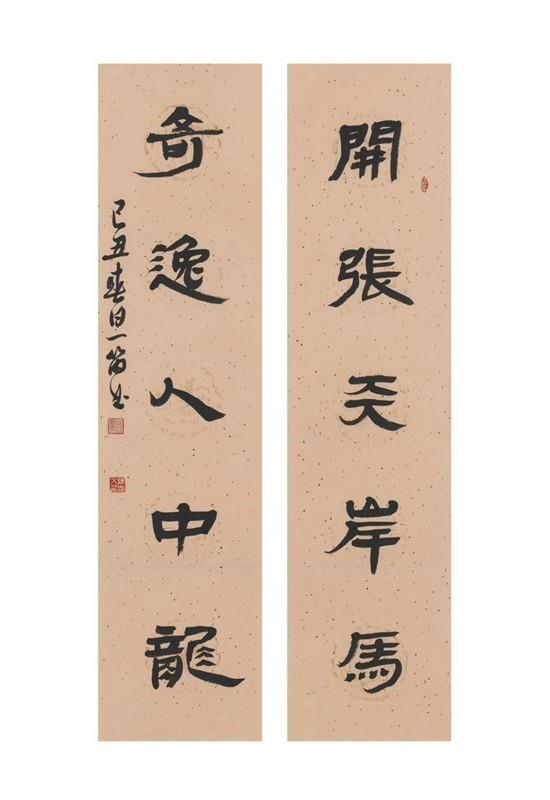 開張天岸馬
奇逸人中龍
己丑春日一笛書